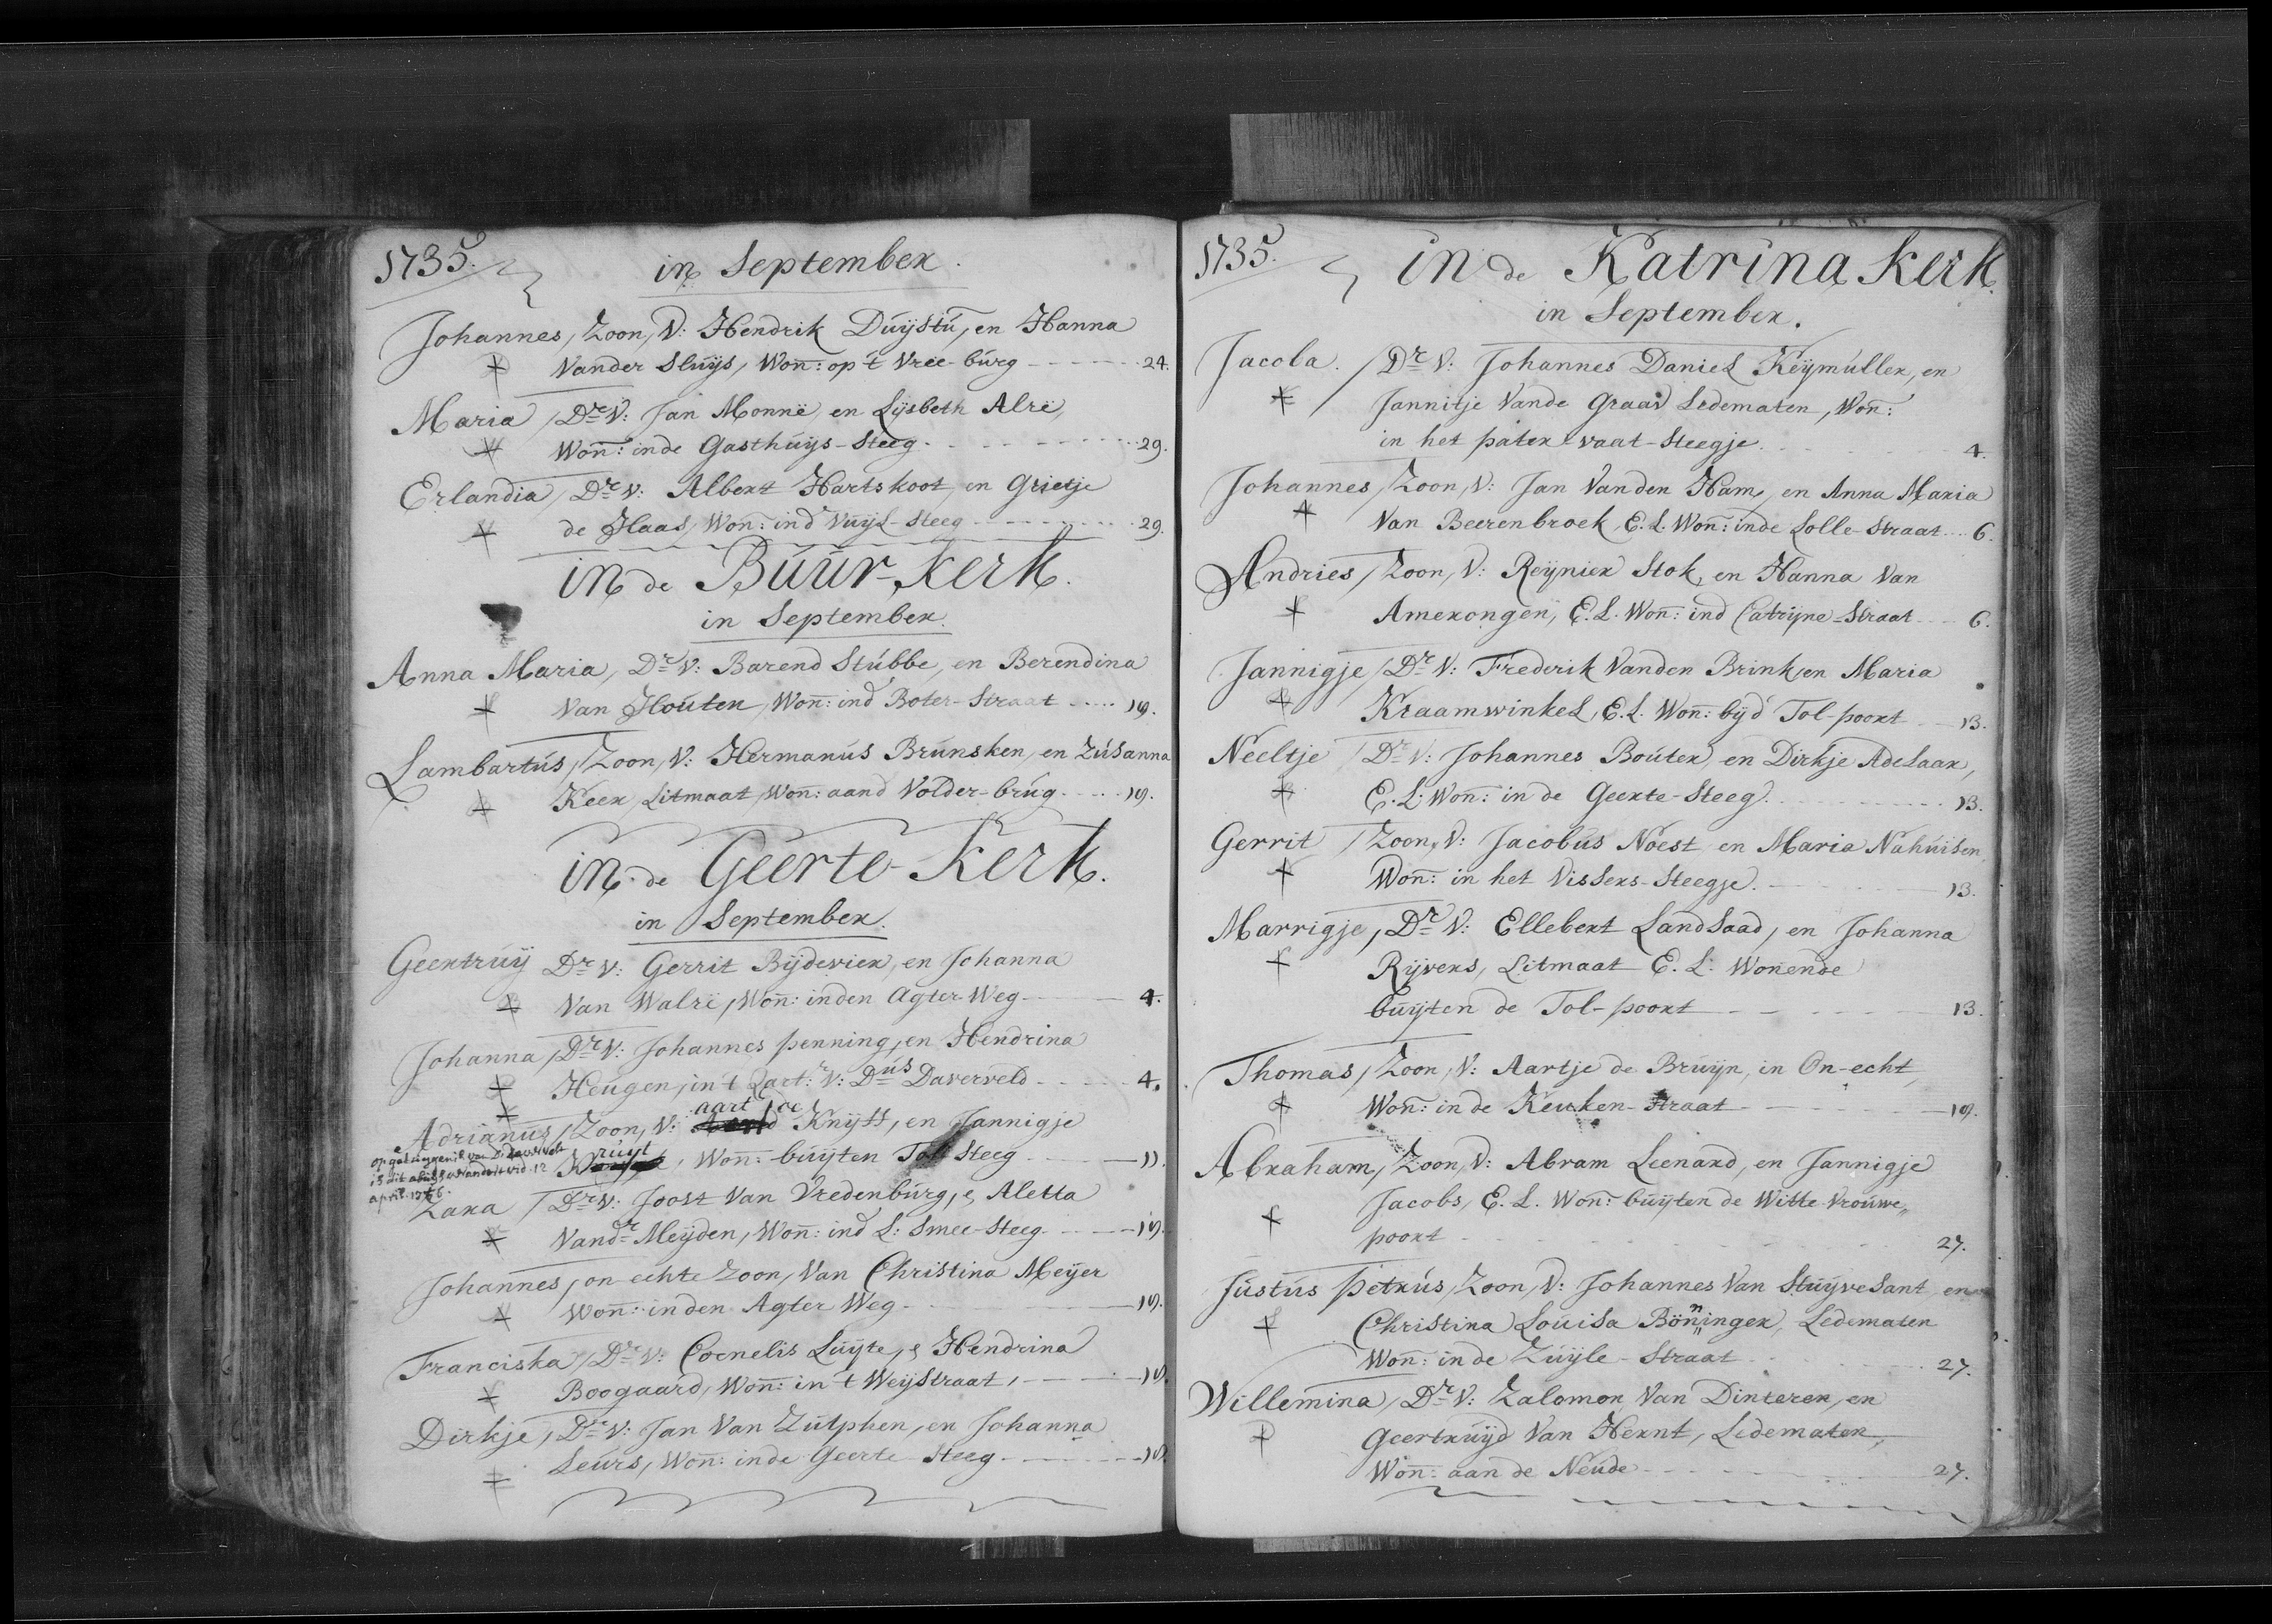 1735.
in September.
Johannes, Zoon, V: Hendrik Duijstu, en Hanna
Vander Sluijs, Won: op 't Vree-burg 24.
Maria, Dr V: Jan Monnë, en Lijsbeth Alrë,
Won: inde Gasthuijs-Steeg 29.
Erlandia, Dr V: Albert Hartskoot, en Grietje
de Haas, Won: ind Vuijl-Steeg 29.
in de Buur-Kerk.
in September.
Anna Maria, Dr V: Barend Stubbe, en Berendina
Van Houten, Won: ind Boter-Straat 19.
Lambartus, Zoon, V: Hermanus Brunsken, en Zusanna
Keer, Litmaat, Won: aand Volder-brug 19.
in de Geerte-Kerk.
in September.
Geertruij Dr V: Gerrit Bijdevier, en Johanna
Van Walrë, Won: inden Agter Weg 4.
Johanna, Dr V: Johannes penning, en Hendrina
Heugen, in't Qart:r V: Dus Daverveld 4.
Adrianus, Zoon, V: aart de Knijff, en Jannigje
Kruijt, Won: buijten Tol Steeg 11.
is dit
april 1776.
Zara, Dr V: Joost Van Vredenburg, e, Aletta
Vandr Meijden, Won: ind L: Smee-Steeg 18.
Johannes, on-echte Zoon, Van Christina Meijer
Won: inden Agter Weg 18.
Franciska, Dr V: Cornelis Luijte, e Hendrina
Boogaard, Won: in 't Weijstraat, 18.
Dirkje, Dr V: Jan Van Zutphen, en Johanna
Leurs, Won: inde Geerte Steeg 18.
1735.
in de Katrina Kerk.
in September.
Jacoba. Dr V: Johannes Daniel Keijmuller, en
Jannitje Vande Graav Ledematen, Won:
in het pater vaat-Steegje 4.
Johannes, Zoon, V: Jan Vanden Ham, en Anna Maria
Van Beerenbroek, E. L. Won: inde Lolle-Straat 6.
Andries, Zoon, V: Reijnier Stok, en Hanna Van
Amerongen, E. L. Won: ind Catrijne-Straat 6.
Jannigje, Dr V: Frederik Vanden Brink, en Maria
Kraamwinkel, E. L. Won: bijd Tol-poort 13.
Neeltje, Dr V: Johannes Bouter, en Dirkje Adelaar,
E. L: Won: in de Geerte-Steeg 13.
Gerrit, Zoon, V: Jacobus Noest en Maria Nahuisen,
Won: in het Vissers-Steegje 13.
Marrigje, Dr V: Ellebert Landsaad, en Johanna
Rijvers, Litmaat E. L: Wonende
buijten de Tol-poort 13.
Thomas, Zoon, V: Aartje de Bruijn, in On-echt,
Won: in de Keuken-Straat 19.
Abraham, Zoon, V: Abram Leenard, en Jannigje
Jacobs, E. L. Won: buijten de Witte Vrouwe„
poort 27.
Justus petrus, Zoon, V: Johannes Van Stuijvesant, en
Christina Louisa Bönninger, Ledematen
Won: in de Zuijle-Straat 27.
Willemina, Dr V: Zalomon Van Dinteren, en
Geertruijd Van Hernt, Ledematen,
Won: aan de Neude 27.